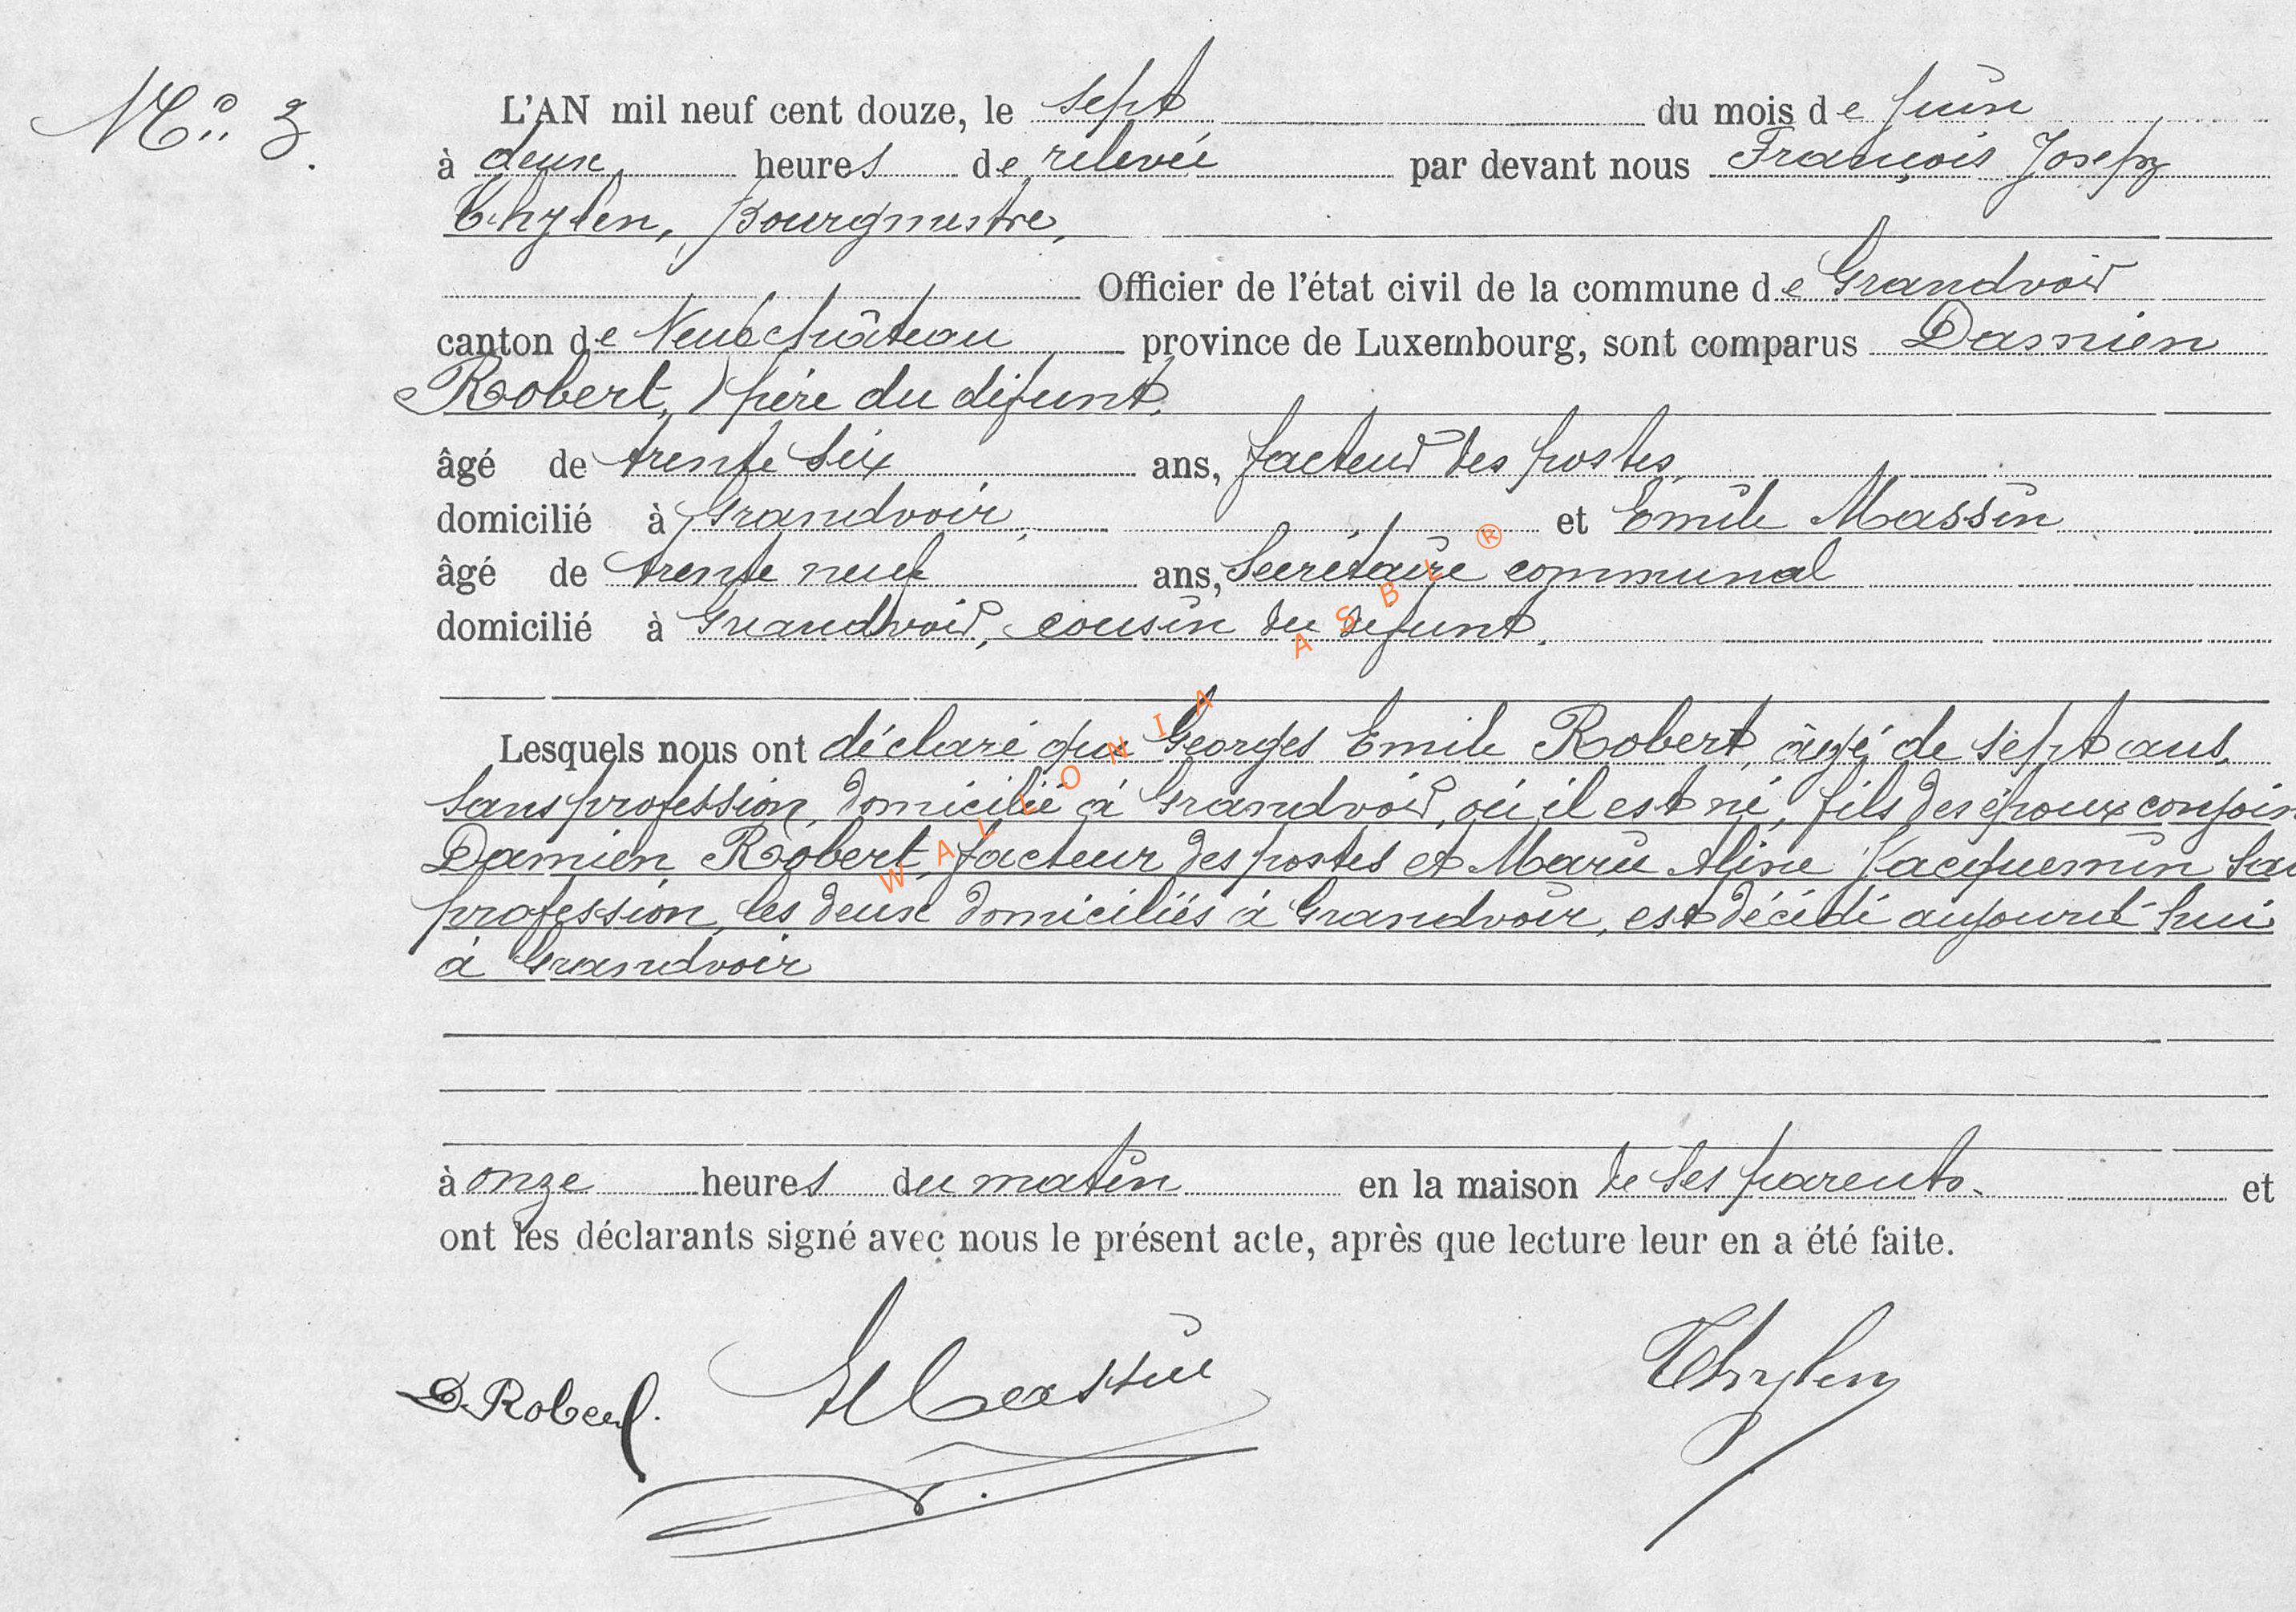 N° 3.
L'AN mil neuf cent douze, le sept du mois de juin
à deux heures de relevée par devant nous François Joseph
Thylen, Bourgmestre,
Officier de l'état civil de la commune de Grandvoir
canton de Neufchâteau province de Luxembourg, sont comparus Damien
Robert, père du défunt,
âgé de trente six ans, facteur des postes,
domicilié à Grandvoir, et Emile Massin
âgé de trente neuf ans, Secrétaire communal
domicilié à Grandvoir, cousin du défunt.
Lesquels nous ont déclaré que Georges Emile Robert, âgé de sept ans,
sans profession, domicilié à Grandvoir, où il est né, fils des époux conjoin
Damien Robert, facteur des postes et Marie Aline Jacquemin sa
profession, les deux domiciliés à Grandvoir, est décédé aujourd'hui
à Grandvoir
à onze heures du matin en la maison de ses parents. et
ont les déclarants signé avec nous le présent acte, après que lecture leur en a été faite.
D. Robert. EMassin Thylen
WALLONIA ASBL ®